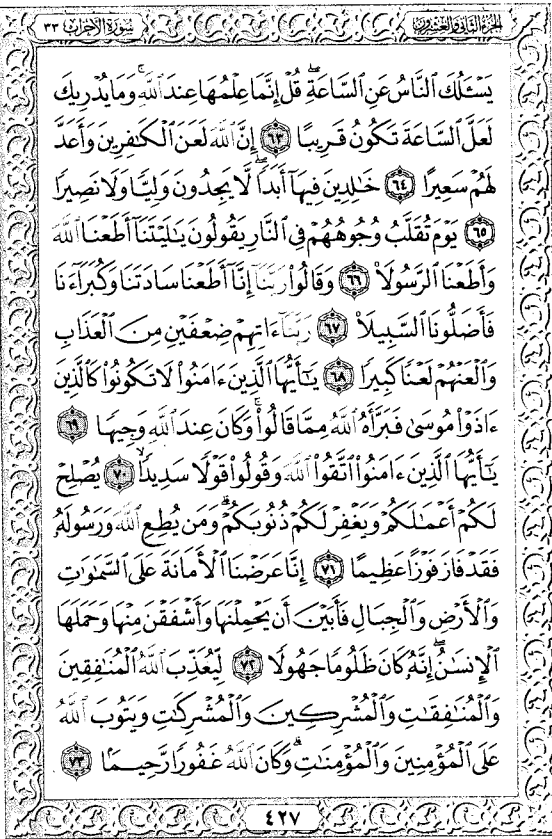 الجزء الثاني والعشرون سورة الأحزاب ٣٣
يَسْـَٔلُكَ ٱلنَّاسُ عَنِ ٱلسَّاعَةِۖ قُلْ إِنَّمَا عِلْمُهَا عِندَ ٱللَّهِۚ وَمَا يُدْرِيكَ
لَعَلَّ ٱلسَّاعَةَ تَكُونُ قَرِيبًا ٦٣ إِنَّ ٱللَّهَ لَعَنَ ٱلْكَٰفِرِينَ وَأَعَدَّ
لَهُمْ سَعِيرًا ٦٤ خَٰلِدِينَ فِيهَآ أَبَدًاۖ لَّا يَجِدُونَ وَلِيًّا وَلَا نَصِيرًا
٦٥ يَوْمَ تُقَلَّبُ وُجُوهُهُمْ فِى ٱلنَّارِ يَقُولُونَ يَٰلَيْتَنَآ أَطَعْنَا ٱللَّهَ
وَأَطَعْنَا ٱلرَّسُولَا۠ ٦٦ وَقَالُوا۟ رَبَّنَآ إِنَّآ أَطَعْنَا سَادَتَنَا وَكُبَرَآءَنَا
فَأَضَلُّونَا ٱلسَّبِيلَا۠ ٦٧ رَبَّنَآ ءَاتِهِمْ ضِعْفَيْنِ مِنَ ٱلْعَذَابِ
وَٱلْعَنْهُمْ لَعْنًا كَبِيرًا ٦٨ يَٰٓأَيُّهَا ٱلَّذِينَ ءَامَنُوا۟ لَا تَكُونُوا۟ كَٱلَّذِينَ
ءَاذَوْا۟ مُوسَىٰ فَبَرَّأَهُ ٱللَّهُ مِمَّا قَالُوا۟ۚ وَكَانَ عِندَ ٱللَّهِ وَجِيهًا ٦٩
يَٰٓأَيُّهَا ٱلَّذِينَ ءَامَنُوا۟ ٱتَّقُوا۟ ٱللَّهَ وَقُولُوا۟ قَوْلًا سَدِيدًا ٧٠ يُصْلِحْ
لَكُمْ أَعْمَٰلَكُمْ وَيَغْفِرْ لَكُمْ ذُنُوبَكُمْۗ وَمَن يُطِعِ ٱللَّهَ وَرَسُولَهُۥ
فَقَدْ فَازَ فَوْزًا عَظِيمًا ٧١ إِنَّا عَرَضْنَا ٱلْأَمَانَةَ عَلَى ٱلسَّمَٰوَٰتِ
وَٱلْأَرْضِ وَٱلْجِبَالِ فَأَبَيْنَ أَن يَحْمِلْنَهَا وَأَشْفَقْنَ مِنْهَا وَحَمَلَهَا
ٱلْإِنسَٰنُۖ إِنَّهُۥ كَانَ ظَلُومًا جَهُولًا ٧٢ لِّيُعَذِّبَ ٱللَّهُ ٱلْمُنَٰفِقِينَ
وَٱلْمُنَٰفِقَٰتِ وَٱلْمُشْرِكِينَ وَٱلْمُشْرِكَٰتِ وَيَتُوبَ ٱللَّهُ
عَلَى ٱلْمُؤْمِنِينَ وَٱلْمُؤْمِنَٰتِۗ وَكَانَ ٱللَّهُ غَفُورًا رَّحِيمًا ٧٣
٤٢٧